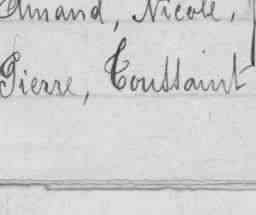 Amand, Nicole,
Pierre, Toussaint